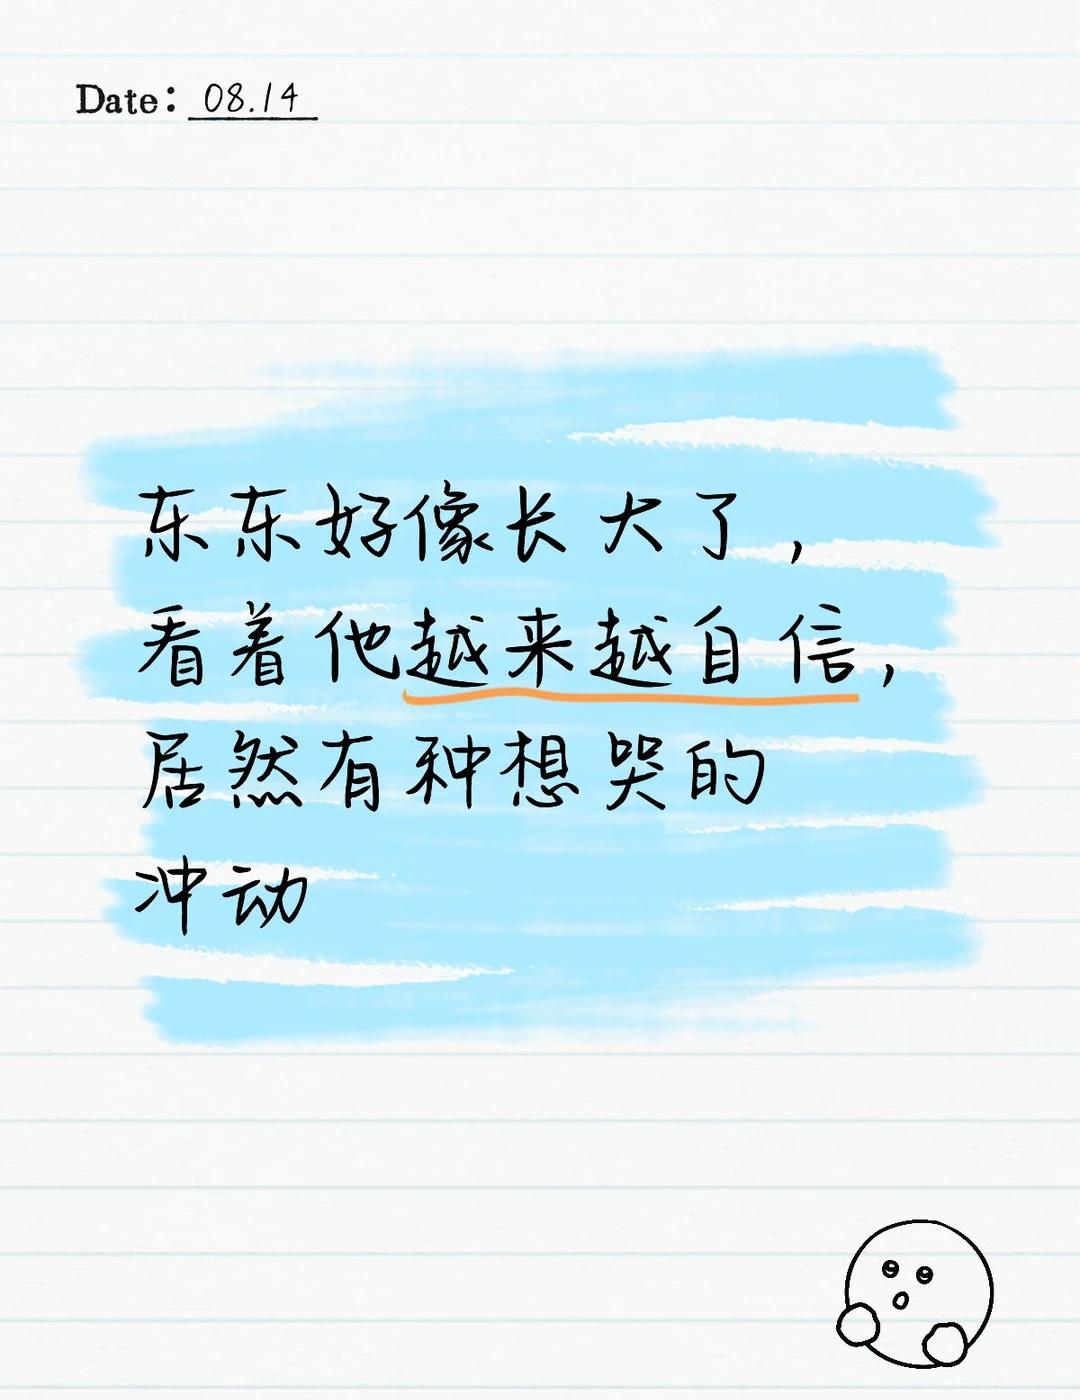 Date: 08.14
东东好像长大了，
看着他越来越自信，
居然有种想哭的
冲动